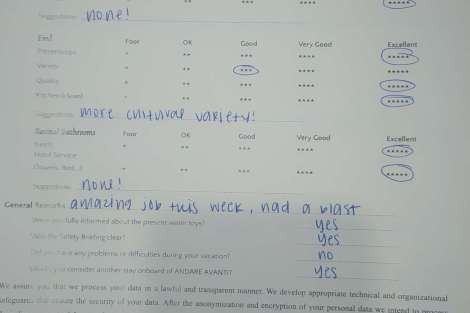 ** *** **** *****
Suggestions none!
Food Poor OK Good Very Good Excellent
Presentation * ** *** **** *****
Variety * ** *** **** *****
Quality * ** *** **** *****
* ** *** **** *****
Suggestions more cultural variety!
Poor OK Good Very Good Excellent
* ** *** **** *****
Hotel Service
* ** *** **** *****
Suggestions none!
General Remarks amazing job this week, had a blast
Were you fully informed about the present water toys? yes
Was the Safety Briefing clear? yes
Did you have any problems or difficulties during your vacation? no
Would you consider another stay onboard of ANDARE AVANTI? yes
We assure you that we process your data in a lawful and transparent manner. We develop appropriate technical and organizational
safeguards that ensure the security of your data. After the anonymization and encryption of your personal data we intend to process